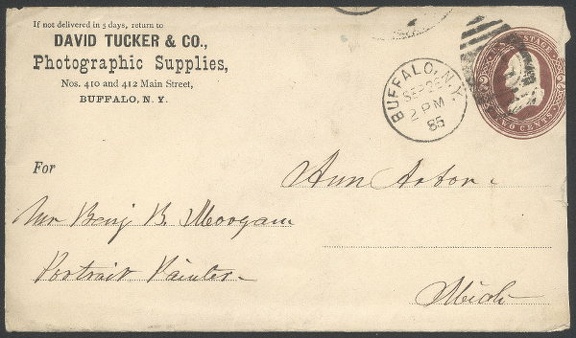 If not delivered in 5 days, return to
DAVID TUCKER & CO.,
Photographic Supplies,
Nos. 410 and 412 Main Street,
BUFFALO, N. Y.
BUFFALO, N.Y.
SEP
2 PM
85
U.S. POSTAGE
TWO CENTS
For
Ann Arbor
Mr Benj B. Moogam
Portrait Painter
Mich